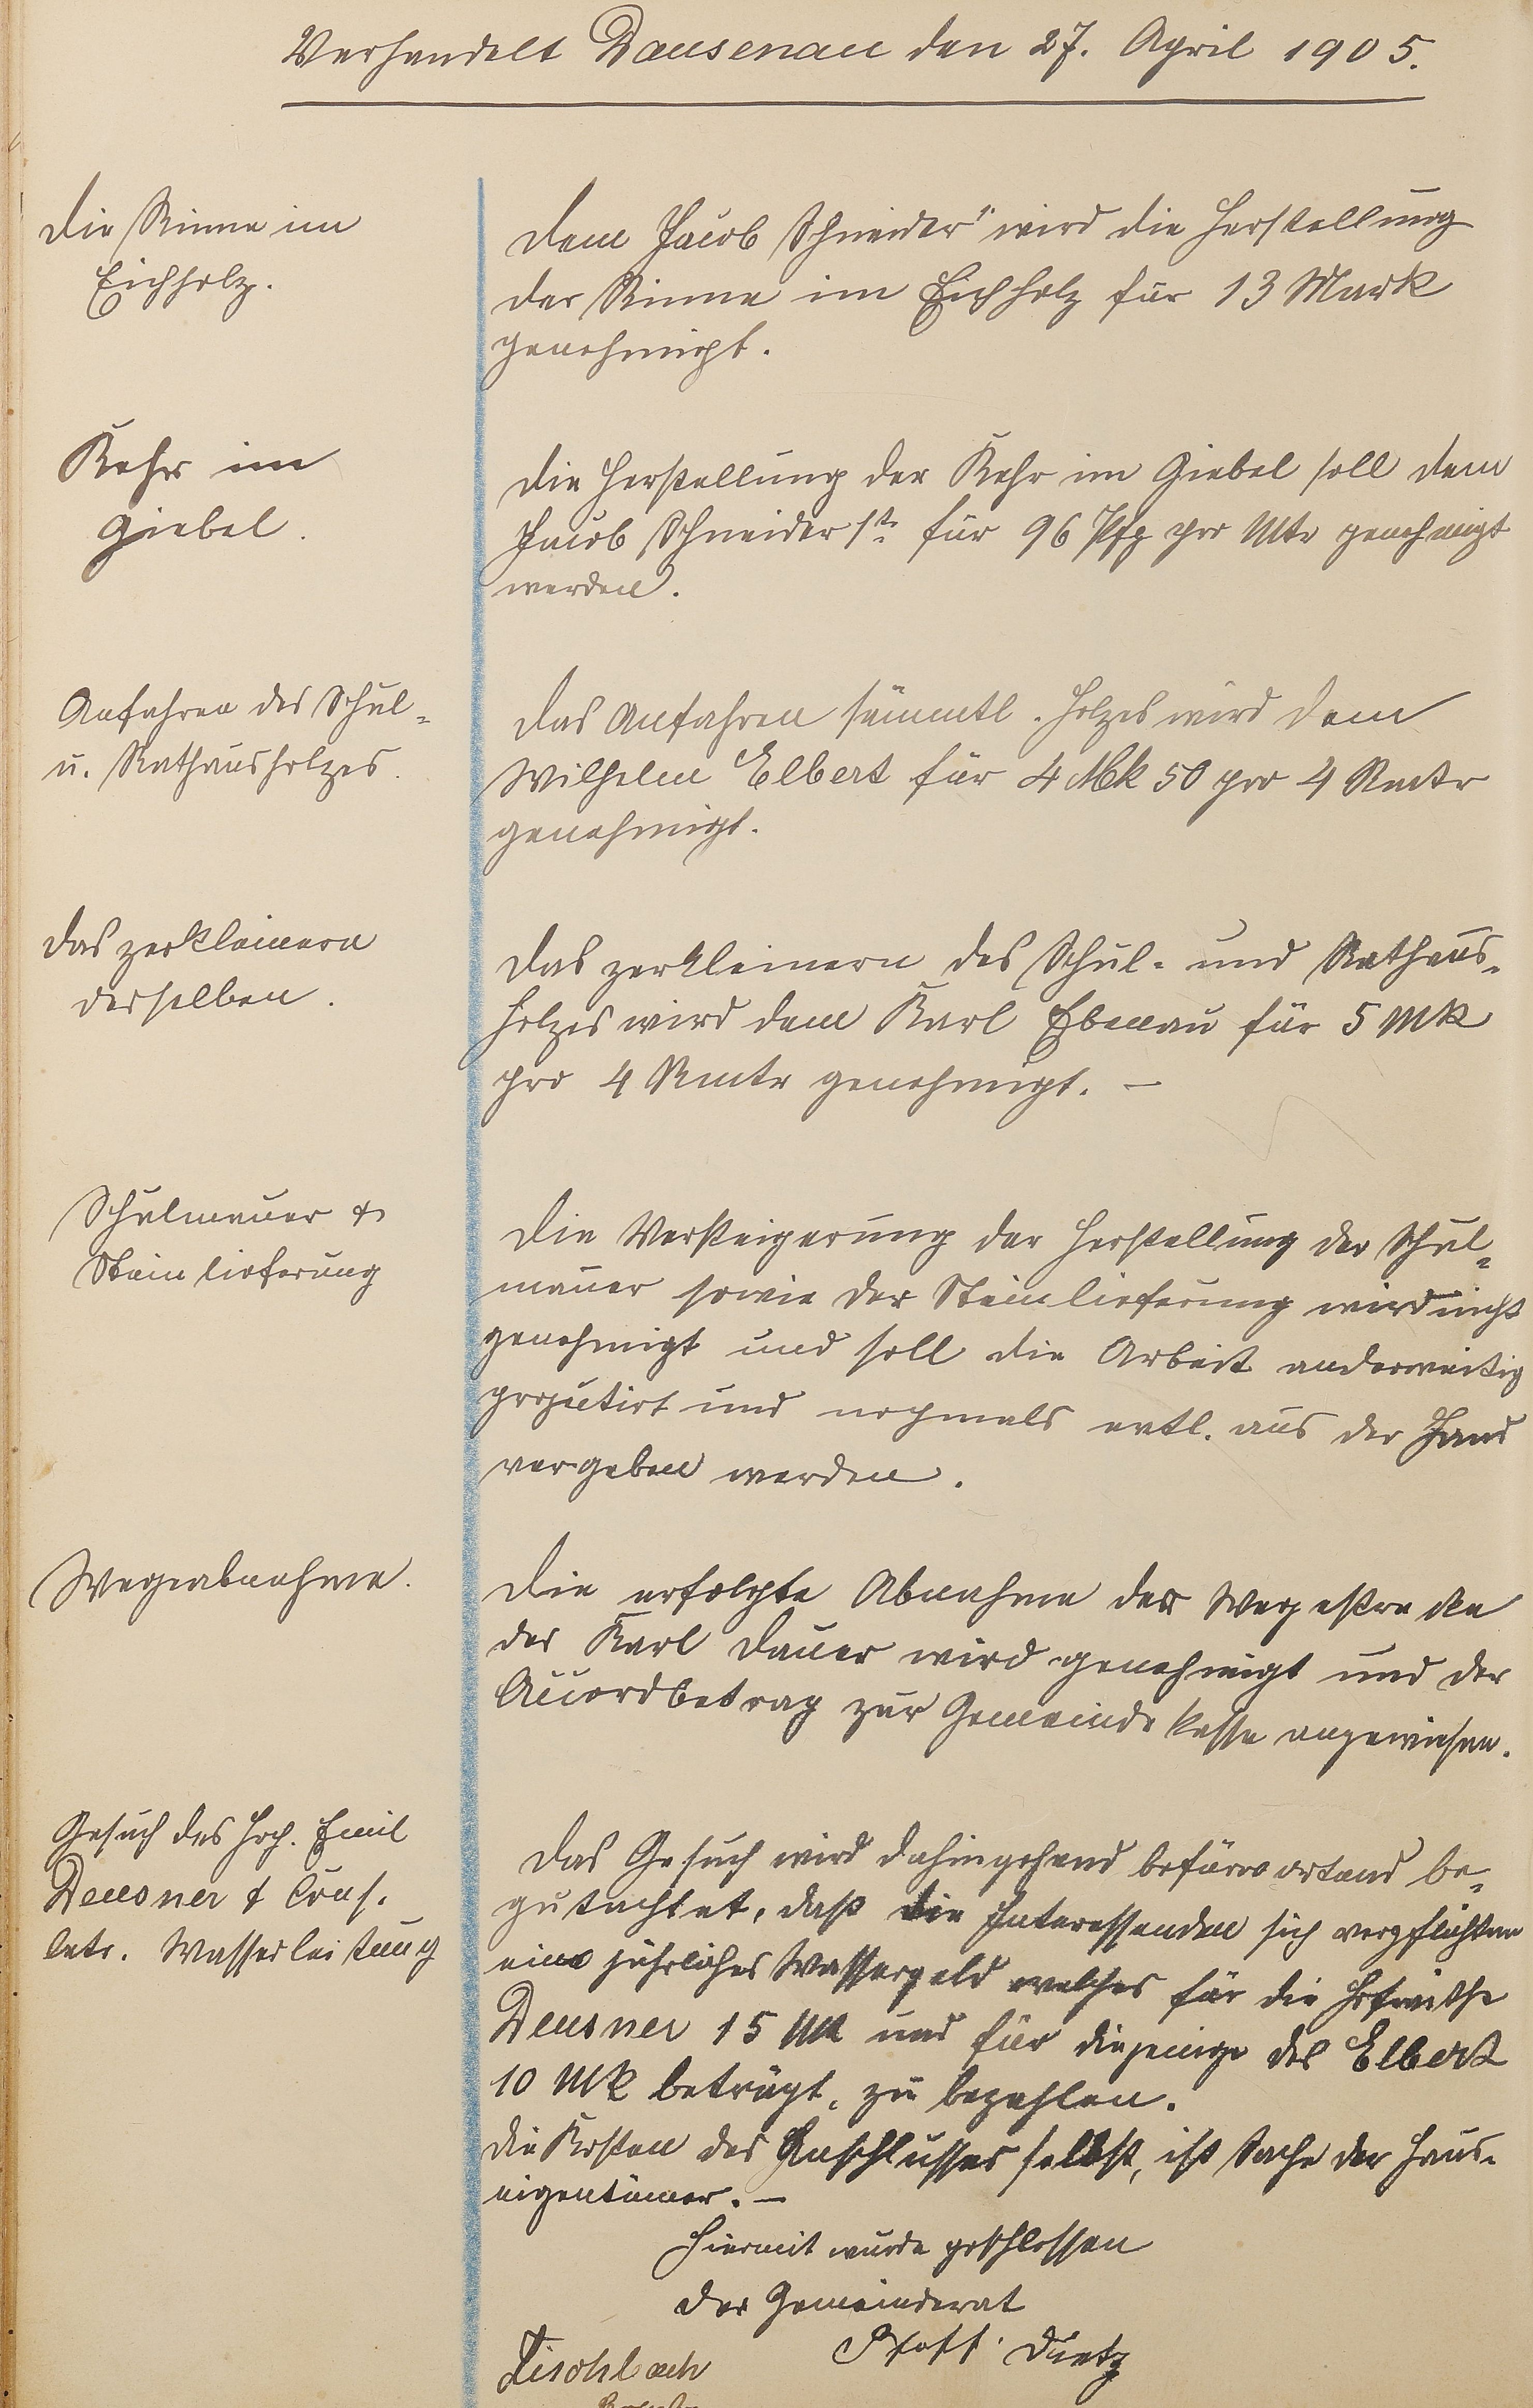 Verhandelt Dausenau den 27. April 1905.
Die Rinne im
Eichholz.
Dem Jacob Schneider wird die Herstellung
der Rinne im Eichholz für 13 Mark
genehmigt.
Kehr im
Giebel.
Die Herstellung der Kehr im Giebel soll dem
Jacob Schneider 1te für 96 Pfg pro Mtr genehmigt
werden.
Anfahren des Schul-
u. Rathausholzes.
Das Anfahren sämmtl. Holzes wird dem
Wilhelm Elbert für 4 Mk 50 pro 4 Rmtr
genehmigt.
Das zerkleinern
desselben.
Das zerkleinern des Schul- und Rathaus-
holzes wird dem Karl Ebenau für 5 Mk
pro 4 Rmtr genehmigt. —
Schulmauer &
Steinlieferung
Die Versteigerung der Herstellung der Schul-
mauer sowie der Steinlieferung wird nicht
genehmigt und soll die Arbeit anderweitig
und nochmals evtl. aus der Hand
vergeben werden.
Wegeabnahme.
Die erfolgte Abnahme der Wegestrecke
des Karl Dauer wird genehmigt und der
Accordbetrag zur Gemeindekasse angewiesen.
Gesuch des Hch. Emil
Deusner & Cons.
betr. Wasserleitung
Das Gesuch wird dahingehend befürwortend be-
gutachtet, daß die Interessenden sich verpflichten
ein jährliches Wassergeld welches für die Hofraithe
Deusner 15 Mk und für diejenige des Elbert
10 Mk beträgt, zu bezahlen.
Die Kosten des Anschlusses selbst, ist Sache der Haus-
eigentümer. —
Hiermit wurde geschlossen
Der Gemeinderat
Fischbach Dietz